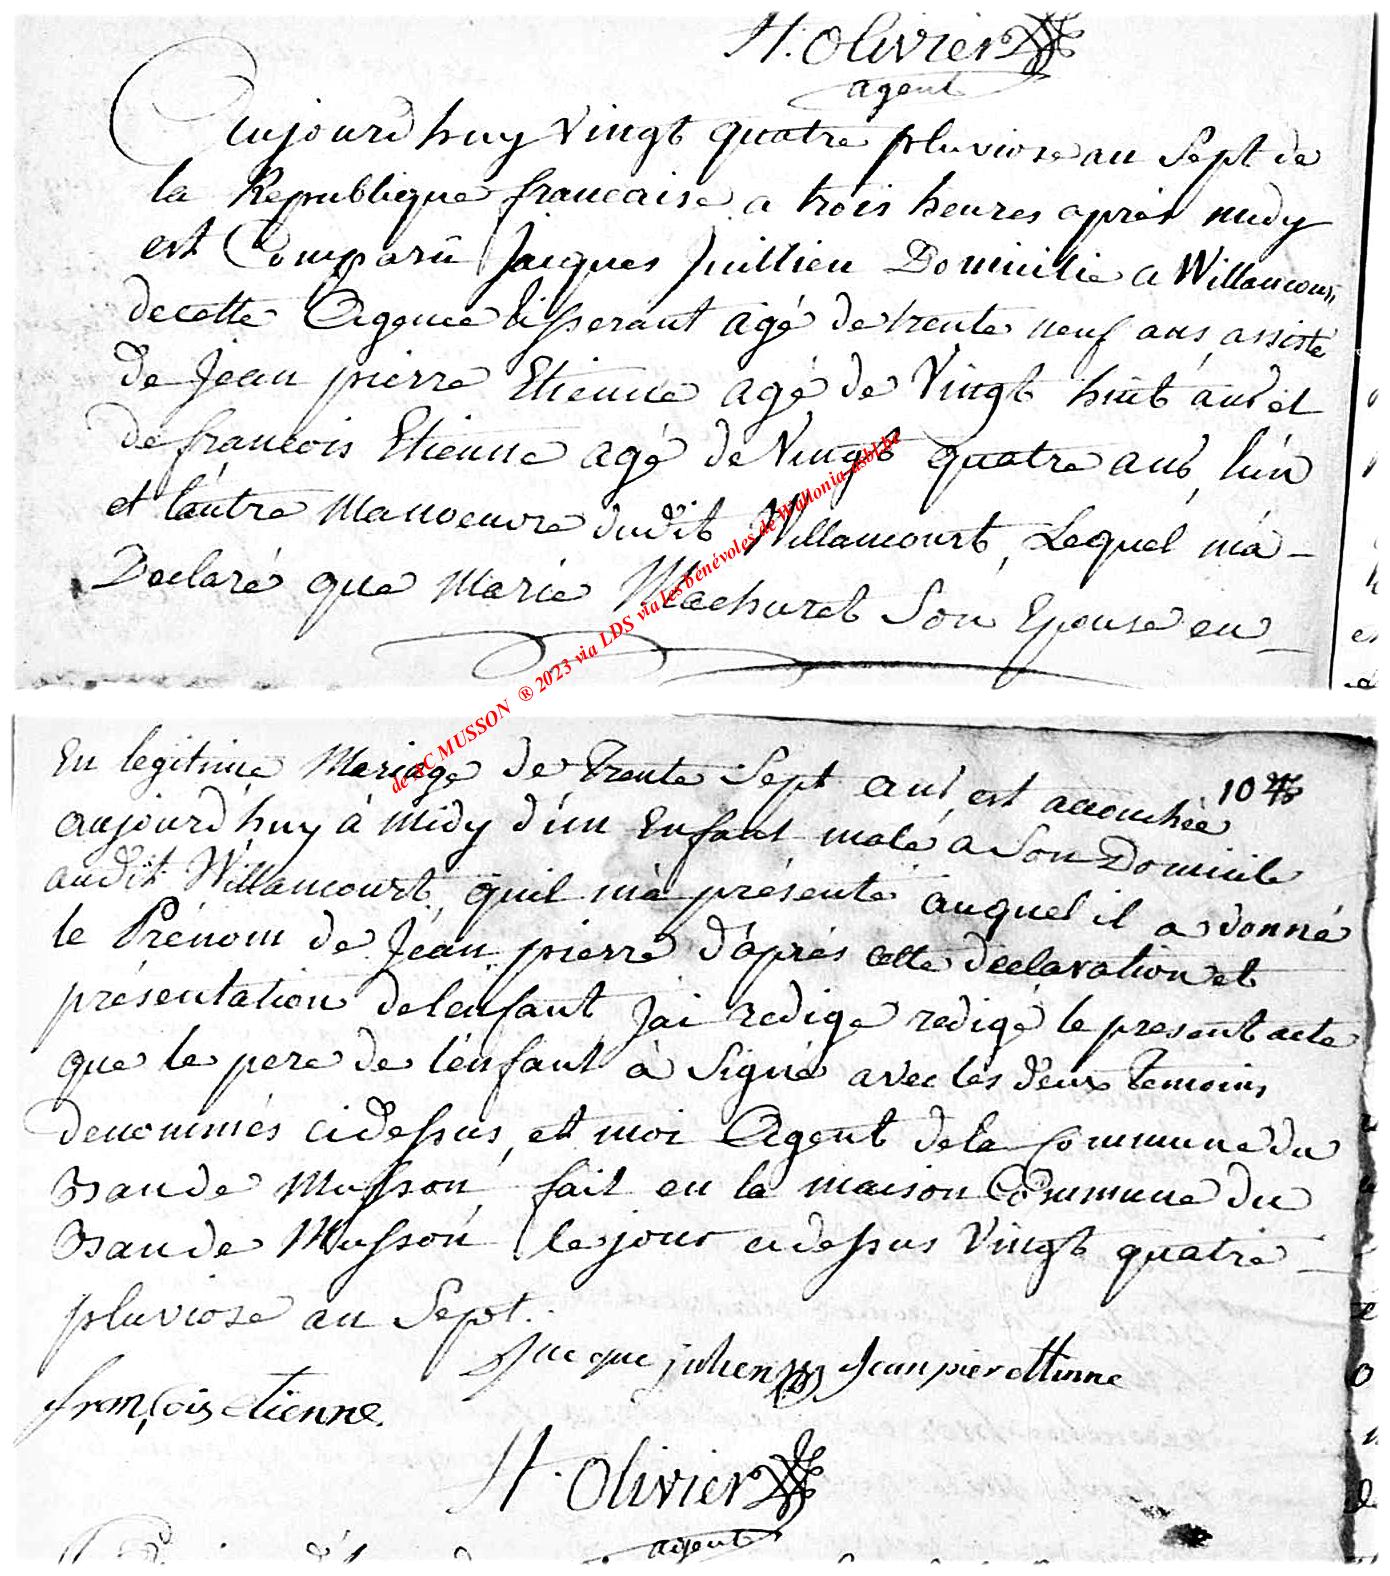 H. Olivier
agent
Aujourd huy Vingt quatre pluviose an Sept de
la Republique francaise a trois heures aprés midy
est Comparû Jacques Juillien Domicilié a Willancourt
decette Agence tisserant agé de trente neuf ans assisté
de Jean pierre Etienne agé de Vingt huit ans et
de francois Etienne agé de Vingt quatre ans, l'un
et l'autre Manoeuvre dudit Willancourt, Lequel m'a
Declaré que Marie Machuret Son Epouse en
de AC MUSSON ® 2023 via LDS via les bénévoles de Wallonia-asbl.be
10
En legitime Mariage de Trente Sept ans, est accouchée
aujourd'huy à midy d'un Enfant male a Son Domicile
audit Willancourt, quil m'a présenté auquel il a donné
le Prénom de Jean pierre d'après cette declaration et
présentation de l'enfant J'ai redigé redigé le present acte
que le pere de l'enfant à Signé avec les deux Temoins
denommés cidessus, et moi Agent de la Commune du
Bande Musson, fait en la maison Commune du
Bande Musson le jour cidessus Vingt quatre
pluviose an Sept.
Jacque julien Jean pier ettinne
françois etienne.
H. Olivier
agent